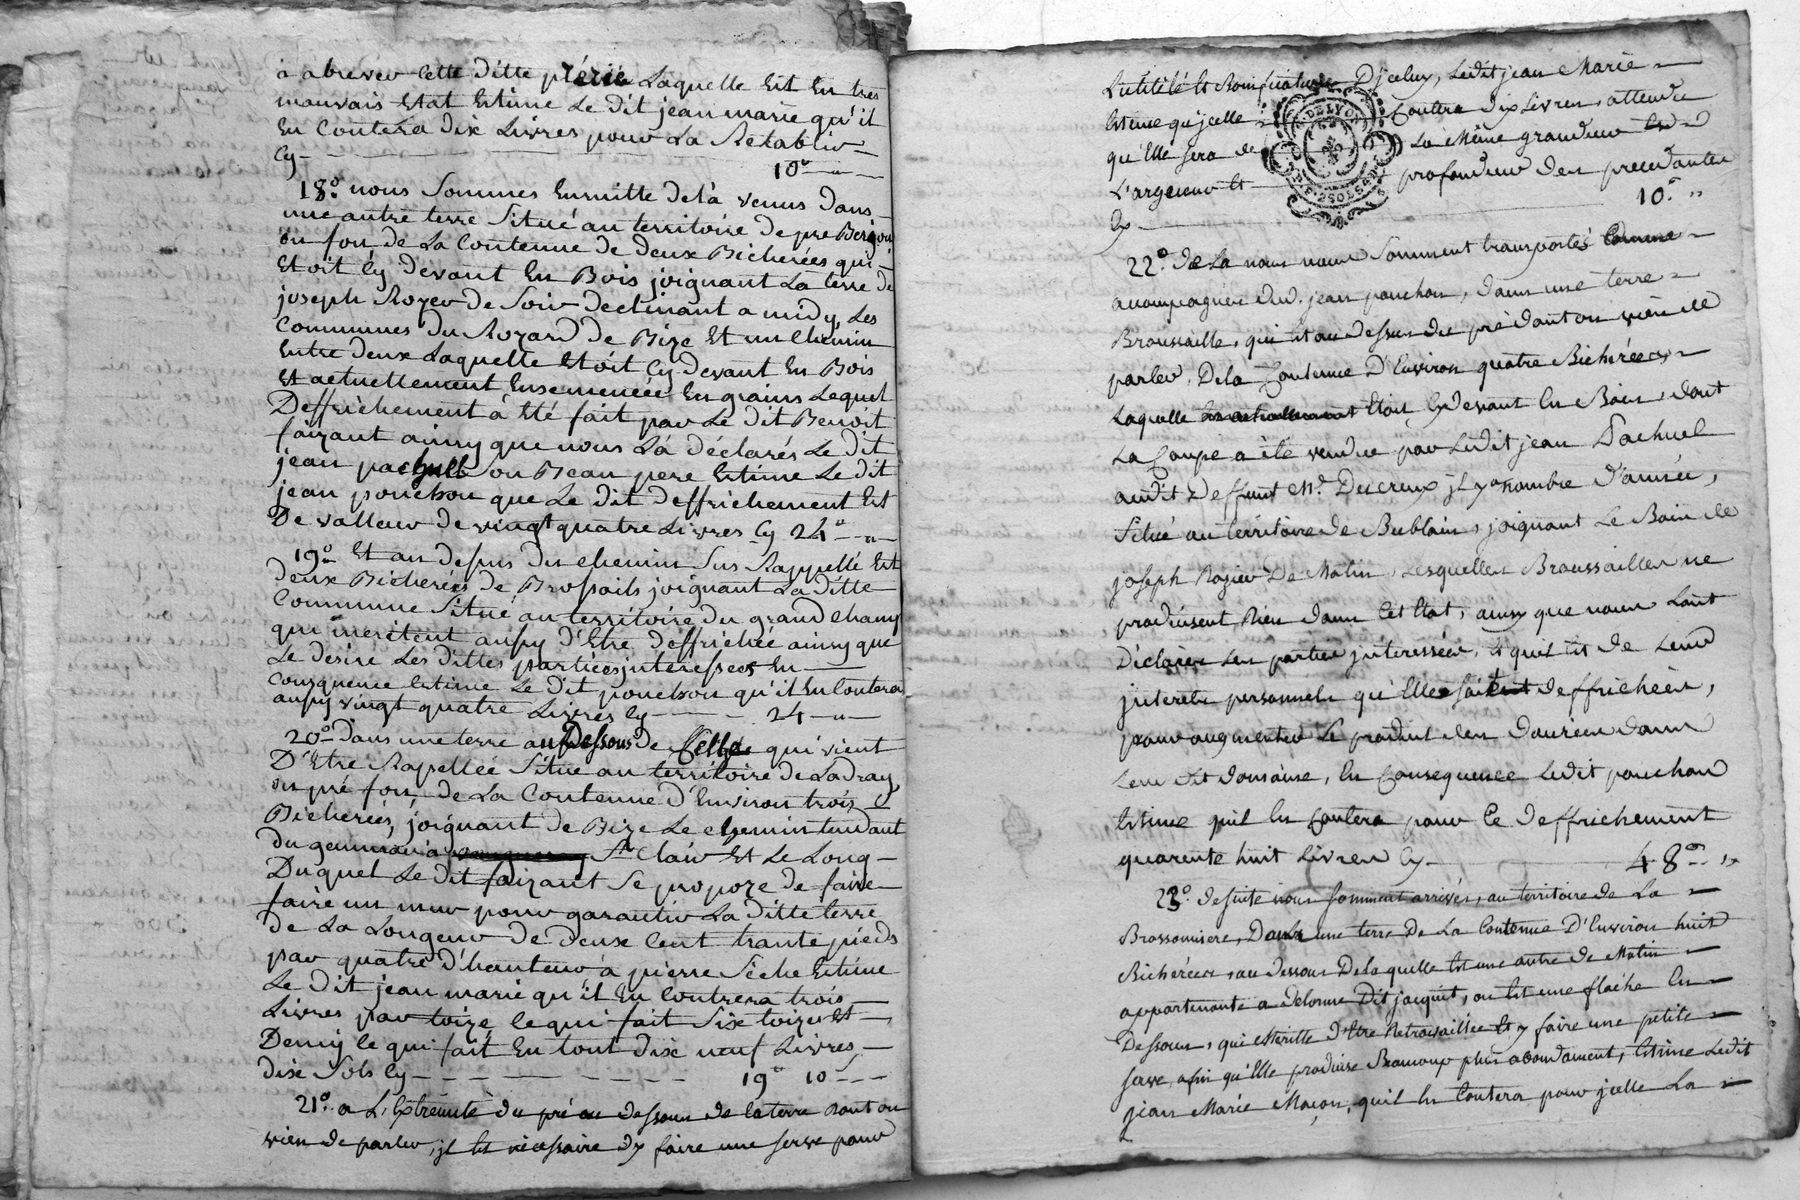 à abrever Cette ditte prérie Laquelle Est En tres
mauvais Etat Estime Le dit jean marie qu'il
En Contera dix Livres pour La Rétablir
Cy 10
18.º nous Sommes Ensuitte delà venus dans
une autre terre Situé au territoire de pre Berjon
ou fon de La Contenue de deux Bicherées qui
Etoit Cy devant En Bois joignant La terre de
joseph Rozer de Soir declinant a midy, Les
Communes du Rozard de Bize Et un Chemin
Entre deux Laquelle Etoit Cy devant En Bois
Et actuellement Ensemencéé En grains Lequel
Deffrichement a Eté fait par Le dit Benoit
faizant ainsy que nous Là déclarés Le dit
jean pachull Son Beau pere Estime Le dit
jean pouchon que Le dit deffrichement Est
De valleur de vingt quatre Livres Cy 24
19º Et au depus du chemin Sus Rappellé Est
deux Bicherées de Brossails joignant La ditte
Commune Situé au territoire du grand champ
qui meritent aussy d'Etre deffrichée ainsy que
Le desire Les dittes parties interessees En
Consquence Estime Le dit pouchon qu'il En Contera
aussy vingt quatre Livres Cy 24
20º dans une terre au dessous de Celle qui vient
D'Etre Rapellée Situé au territoire de Ladray
ou pré fon de La Contenue d'Environ trois
Bicherées, joignant de Bize Le chemin tendant
du a St Clair Et Le Long
Duquel Le dit faizant Se propoze de faire
faire un mur pour garantir La ditte terre
de La Longeur de deux Cent trante pieds
par quatre d'hauteur à pierre Séche Estime
Le dit jean marie qu'il En Contrera trois
Livres par toize ce qui fait Six toizes Et
Demy ce qui fait En tout dix neuf Livres
dix Sols Cy 19 10
21º. a L'Extrémité du pré au dessous de la terre dont on
vien de parler, jl Est nécessaire dy faire une serve pour
L'utilité Et Bonification D'jcelux, Ledit jean Marie
Estime qu'jcelle Contera dix Livres, attendu
qu'Elle sera de La Même grandeur
L'argeur Et profondeur des precedantes
Cy 10
22º. de La nous nous Sommes transportés
acompagnées dud. jean pouchon, dans une terre
Broussaille, qui Est au dessus du pré dont on vien de
parler. De la Contenue D'Environ quatre Bicherées
Laquelle Etoit Cy devant En Bois, dont
La Coupe a été vendue par Ledit jean Pachuel
audit deffunt Mr. Decreux jl y a nombre d'année,
Situé au territoire de Bublain, joignant Le Bois de
joseph Rozier De Matin, Lesquelles Broussailles ne
produisent Rien dans Cet Etat, ainsy que nous L'ont
Déclarée Les parties jnteressées, Et quil Est de Leurs
jnterets personnels qu'Elles soient deffrichées,
pour augmenter Le produit des danrées dans
Leur dit domaine, En Consequence Ledit pouchon
Estime quil En Contera pour Ce deffrichement
quarente huit Livres Cy 48
23º. de suite nous sommes arrivés, au territoire de La
Brossonniere, Dans une terre De La Contenue D'Environ huit
Bicherées, au dessous De laquelle Est une autre de Matin
appartenante a delorme dit jacquet, ou Est une flache En
Dessous, qui Merite d'Etre Retravaillée Et y faire une petite
serve, afin qu'Elle produise Beaucoup plus abondament, Estime Ledit
jean Marie Maçon, quil En Contera pour jcelle La